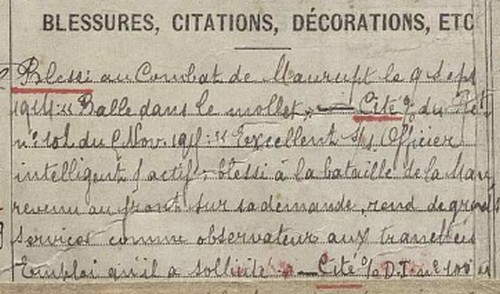 BLESSURES, CITATIONS, DÉCORATIONS, ETC
Blessé au Combat de Maurupt le 9 Sept
1914 :: Balle dans le mollet, — Cité du
n° du Nov. :: Excellent Officier
intelligent & actif - blessé à la bataille de la Mar
revenu au front sur sa demande, rend de grands
services comme observateur aux tranchées
Emploi qu'il a sollicité — Cité D.I. n° 100